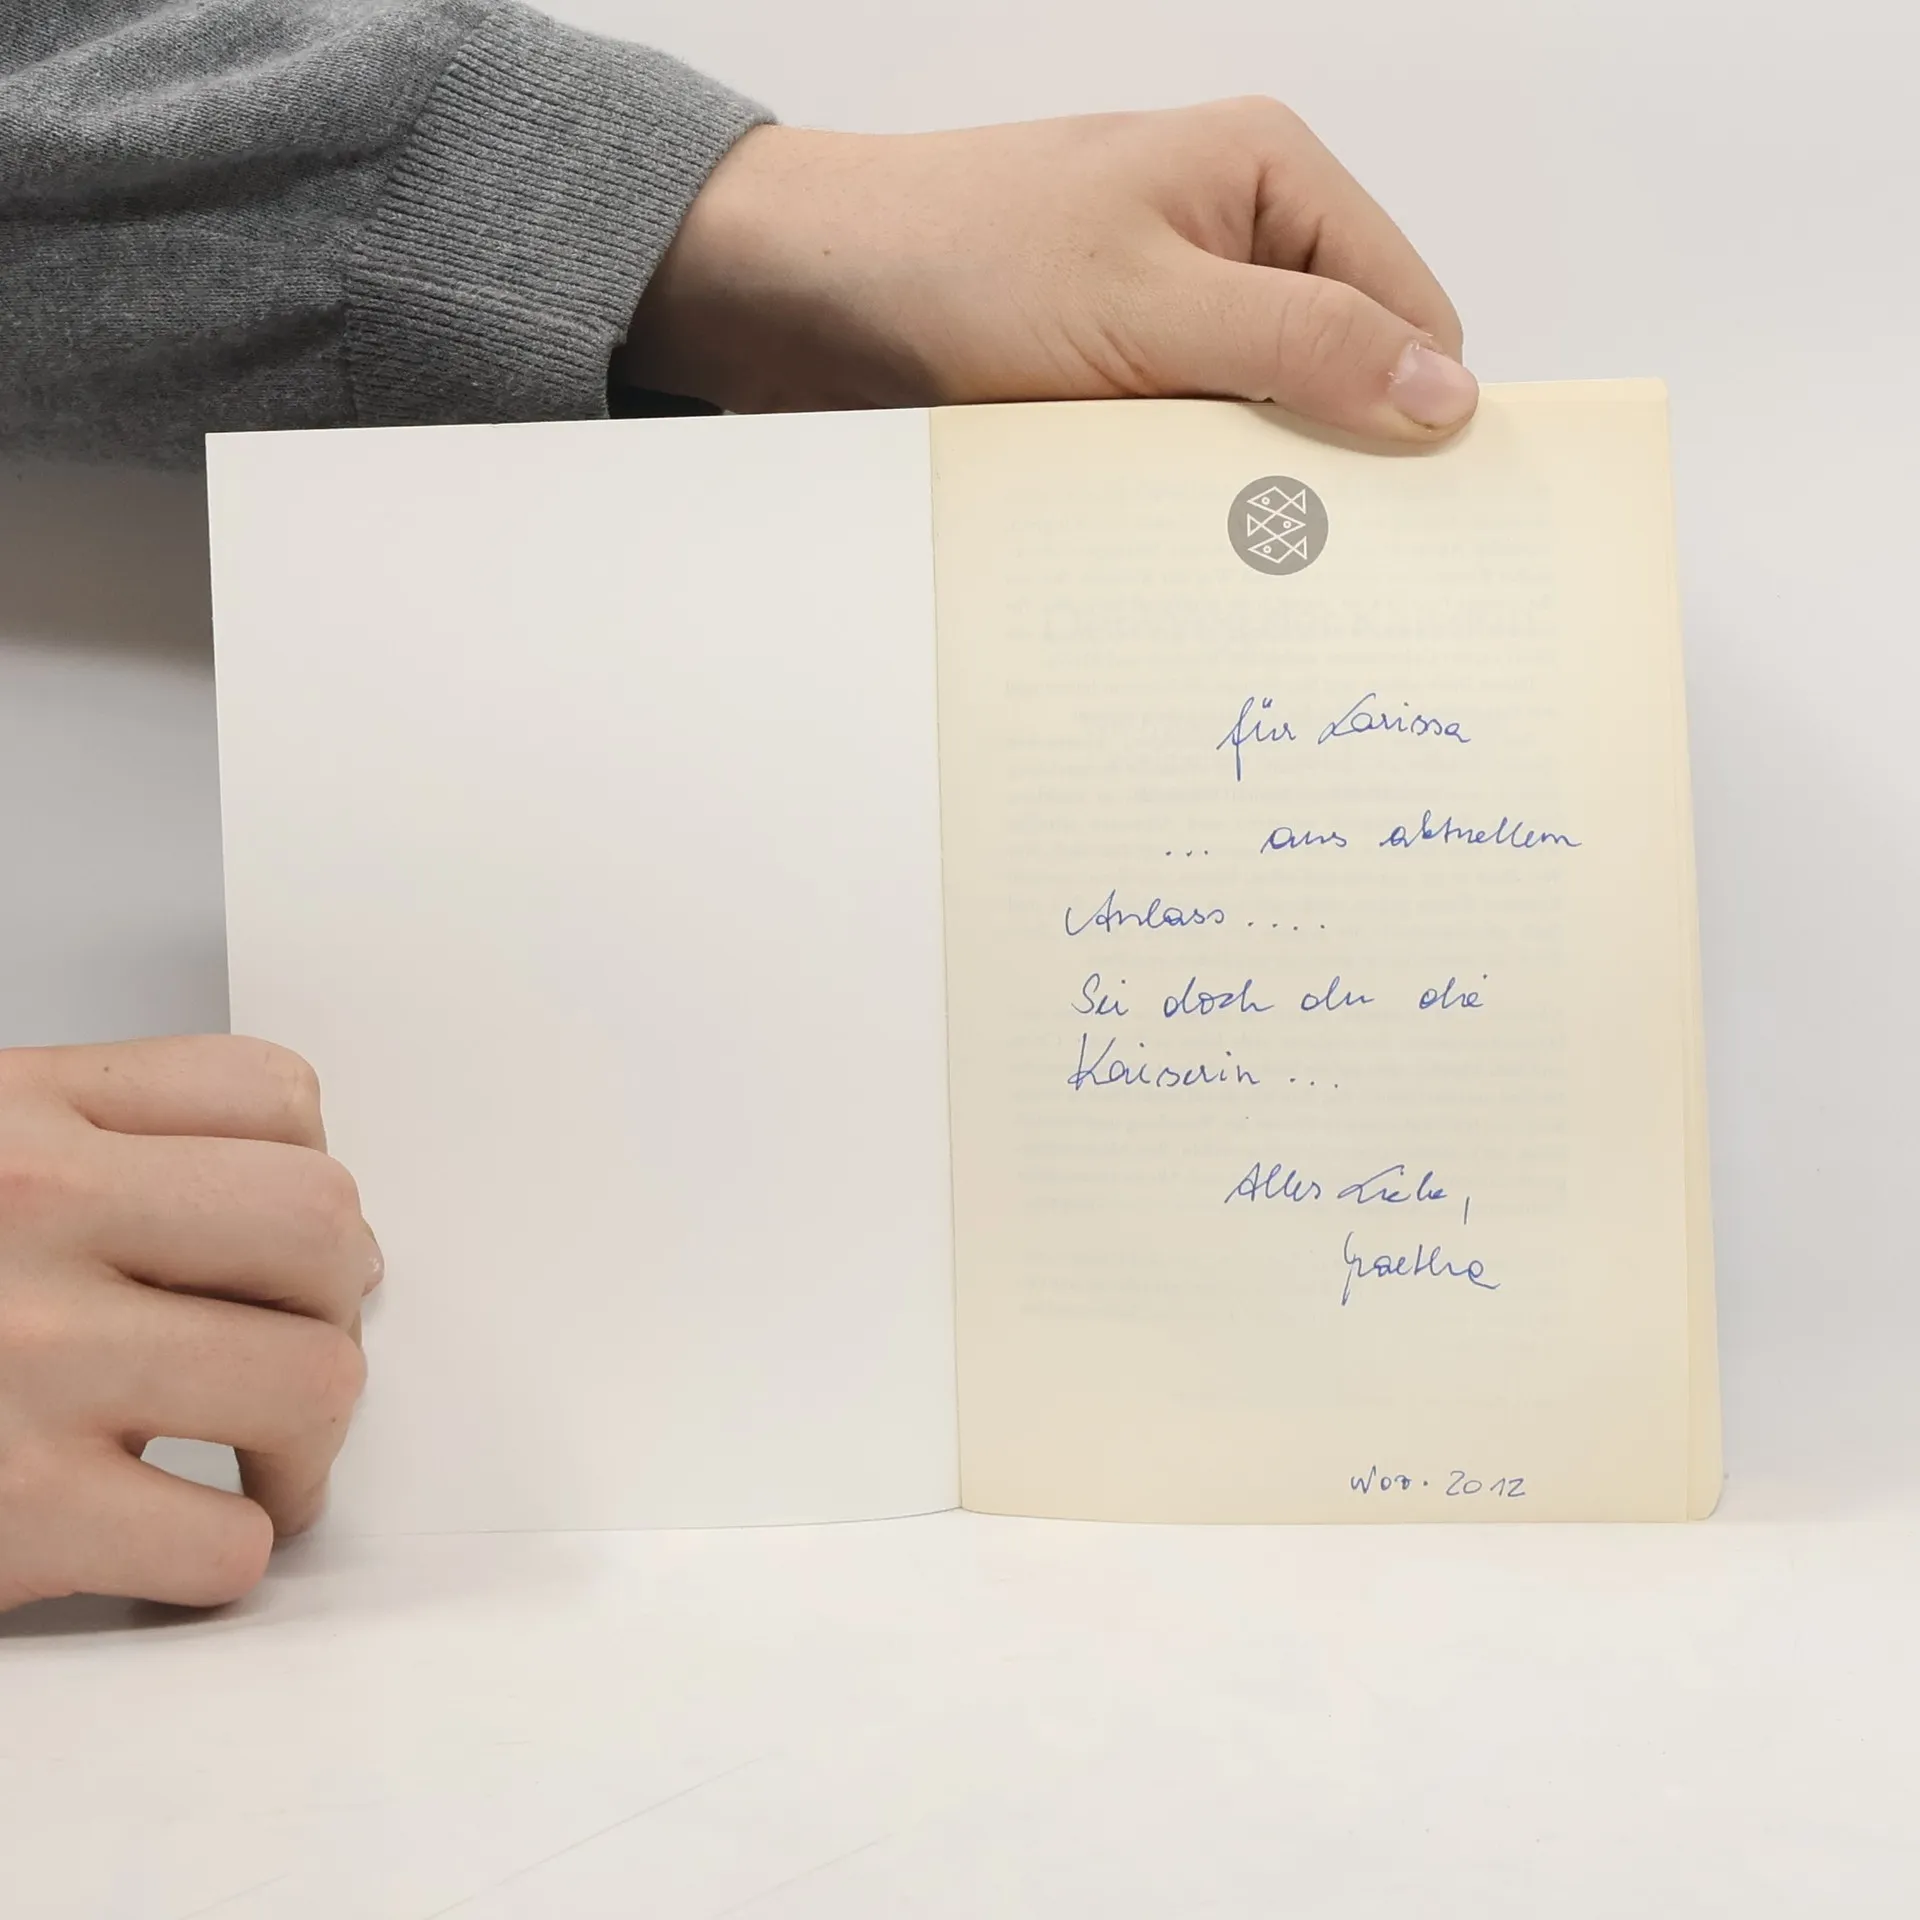 für Larissa
... aus aktuellem
Anlass ....
Sei doch du die
Kaiserin ...
Alles Liebe,
2012